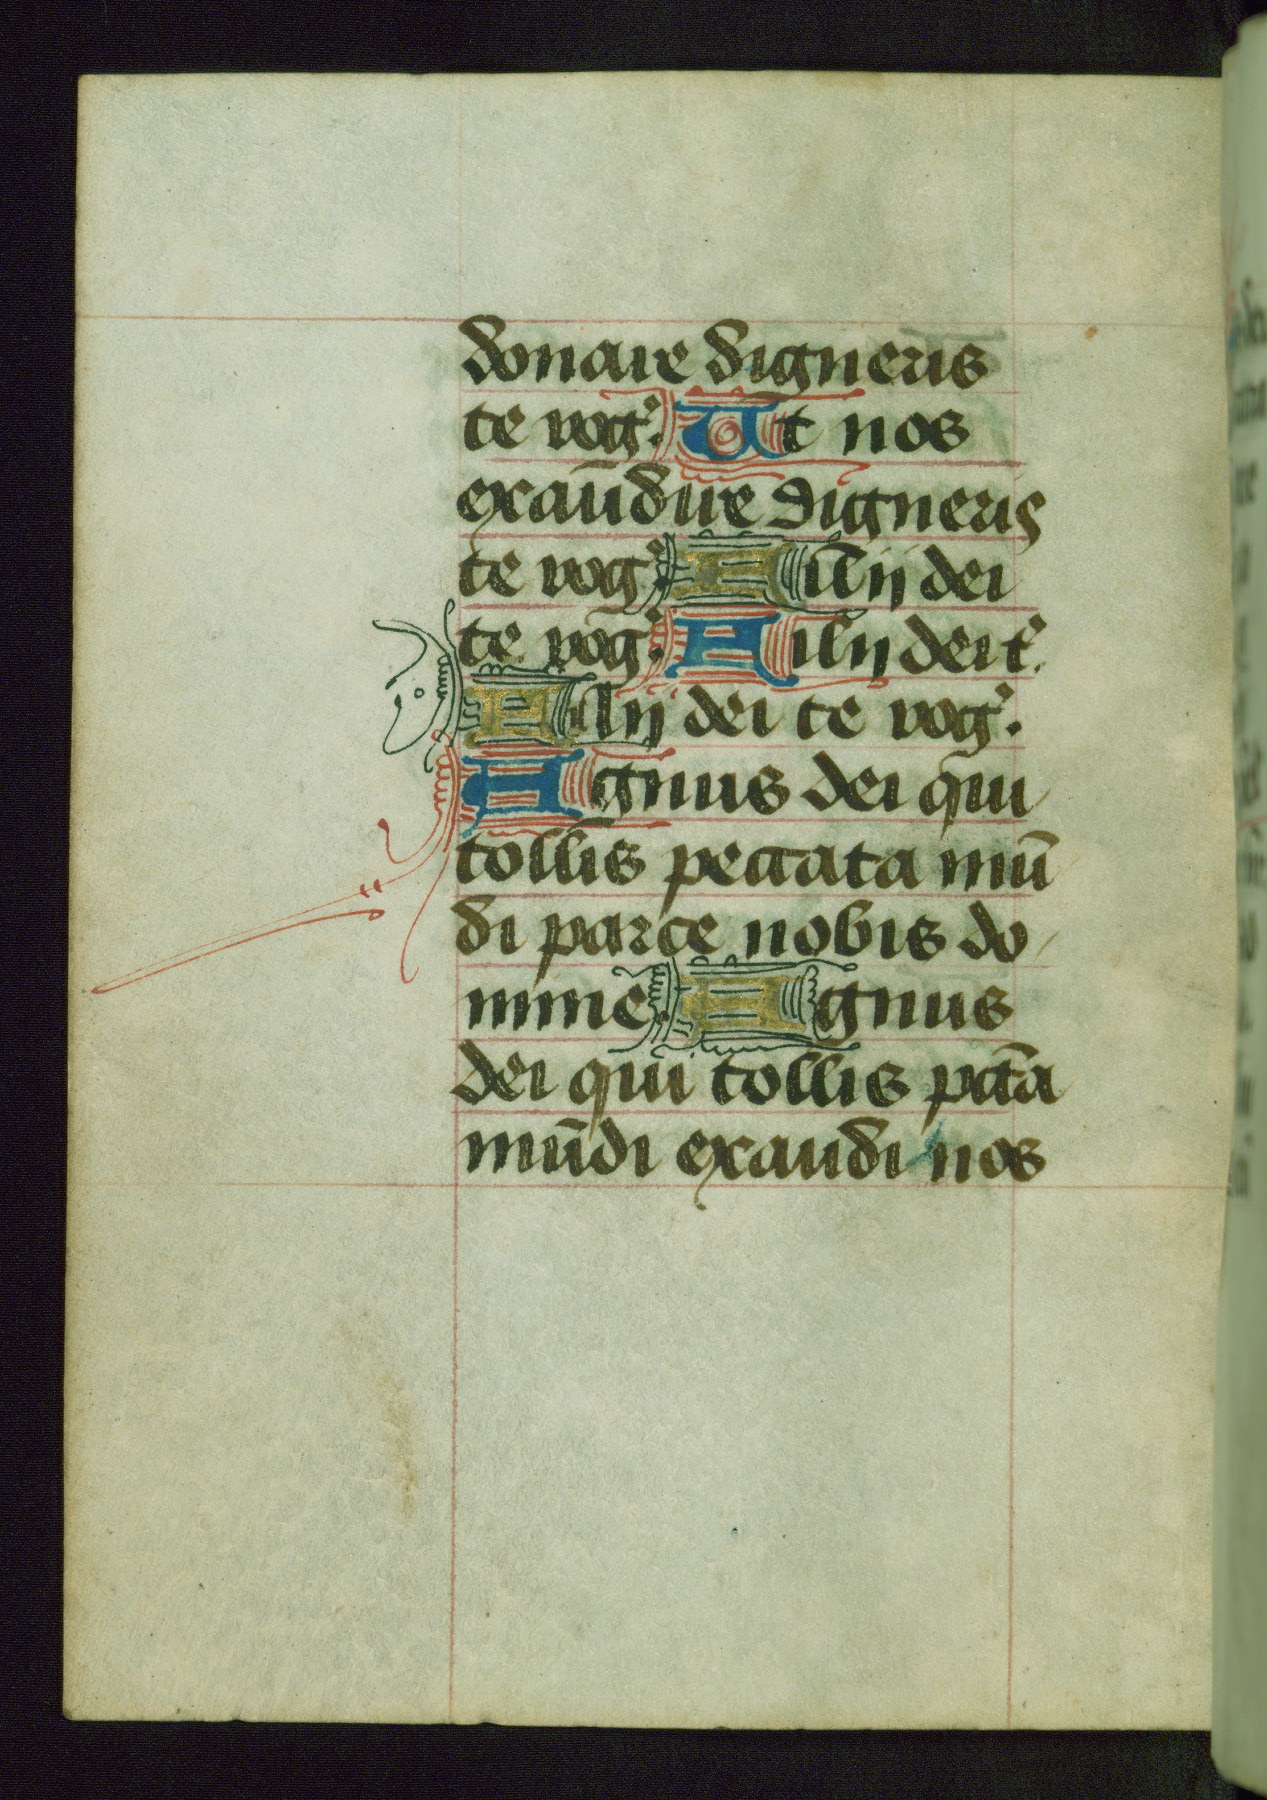 donare digneris
te rog̃. Ut nos
exaūdire digneris
te rog̃. Filij dei
te rog̃. Filij dei t̃.
Filij dei te rog̃.
Agnus dei qui
tollis peccata mū
di parce nobis do
mine Agnus
dei qui tollis pctā
mūdi exaudi nos